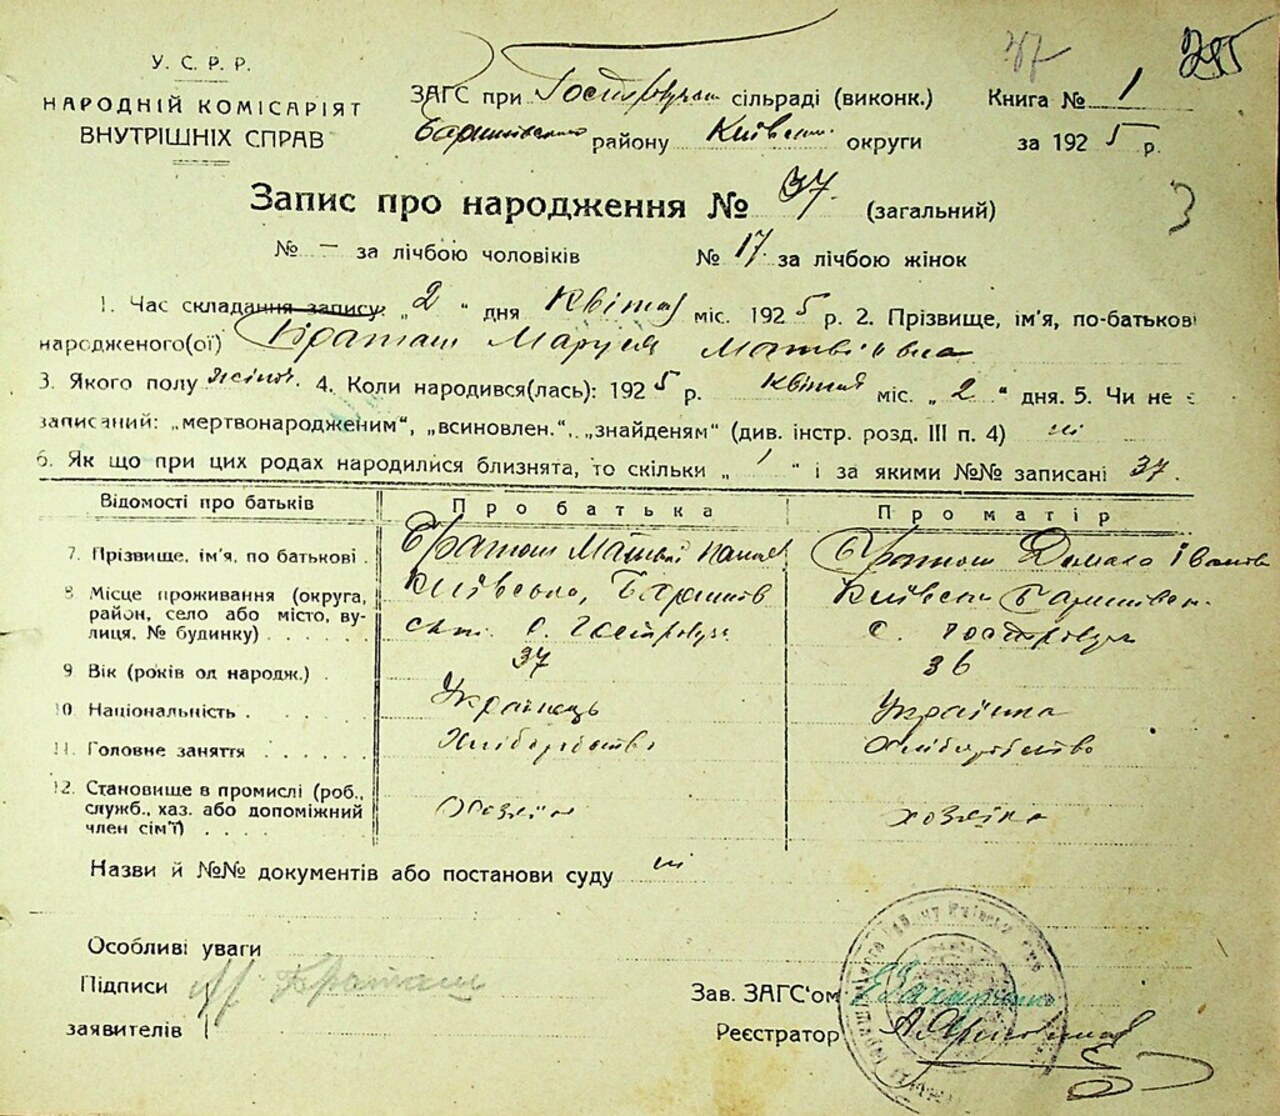 37 295
У. С. Р. Р.
НАРОДНІЙ КОМІСАРІЯТ
ВНУТРІШНІХ СПРАВ
ЗАГС при сільраді (виконк.)
району Київськ. округи
Книга № 1
за 1925 р.
Запис про народження № 37. (загальний)
3
№ – за лічбою чоловіків № 17. за лічбою жінок
1. Час складання запису: „2“ дня Квітня міс. 1925 р. 2. Прізвище, ім'я, по-батькові
народженого(ої) Браташ Маруся Матвіївна
3. Якого полу жіноч. 4. Коли народився(лась): 1925 р. Квітня міс. „2“ дня. 5. Чи не є
записаний: „мертвонародженим“, „всиновлен.“, „знайденям“ (див. інстр. розд. III п. 4) ні
6. Як що при цих родах народилися близнята, то скільки „1“ і за якими №№ записані 37.
Відомості про батьків Про батька Про матір
7. Прізвище, ім'я, по батькові Браташ Матвій Браташ Домаха Іванов
8 Місце проживання (округа, район, село або місто, вулиця, № будинку) Київська, Баришів Київськ Баришівськ.
с. с.
9 Вік (років од народж.) 37 36
10 Національність Українець Українка
11. Головне заняття Хліборобство Хліборобство
12. Становище в промислі (роб., служб., хаз. або допоміжний член сім'ї) Хозяїн хозяїка
Назви й №№ документів або постанови суду ні
Особливі уваги
Підписи М Браташ
заявителів
Зав. ЗАГС'ом
Реєстратор